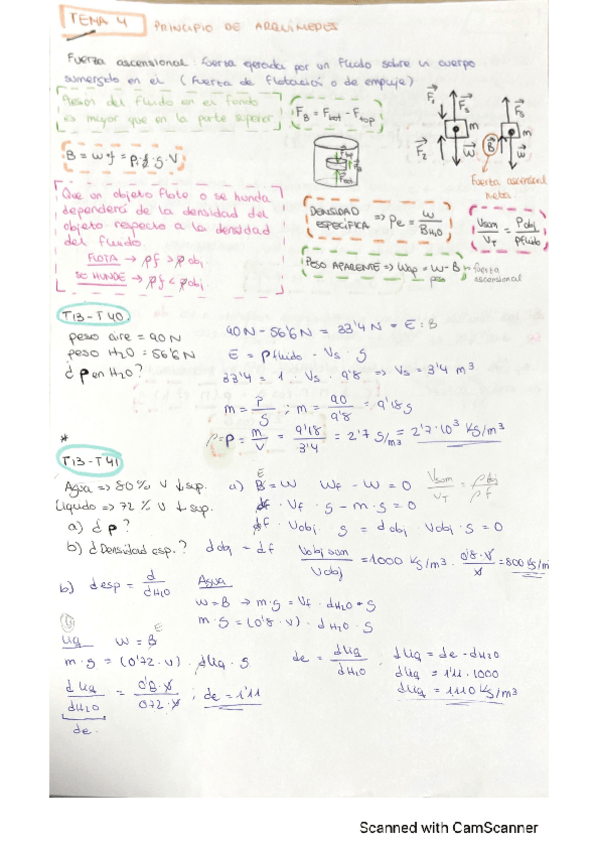 TEMA 4 PRINCIPIO DE ARQUÍMEDES
Fuerza ascensional: fuerza ejercida por un fluido sobre un cuerpo
sumergido en el (fuerza de flotación o de empuje)
Presión del fluido en el fondo
es mayor que en la parte superior
F_B = F_bot - F_top
B = w_f = ρ_f · g · V
F₁ F₃ m F₂ w
F₃ m B w
Fuerza ascensional
neta.
Que un objeto flote o se hunda
dependerá de la densidad del
objeto respecto a la densidad
del fluido.
FLOTA → ρf > ρobj
SE HUNDE → ρf < ρobj
DENSIDAD
ESPECÍFICA => ρe = w / B_H2O
Vsum / V_T = ρobj / ρfluido
PESO APARENTE => Wap = w - B → fuerza
peso ascensional
T13-T40.
peso aire = 90N
peso H2O = 56'6N
¿ρ en H2O?
90N - 56'6N = 33'4N = E : B
E = ρfluido · Vs · g
33'4 = 1 · Vs · 9'8 => Vs = 3'4 m³
m = P/g ; m = 90/9'8 = 9'18g
ρ = ρ = m/V = 9'18/3'4 = 2'7 g/m³ = 2'7·10³ kg/m³
*
T13-T41
Agua => 80% V ↓ sup.
Líquido => 72% V ↓ sup.
a) ¿ρ?
b) ¿Densidad esp.?
a) B = W Wf - W = 0
E
Vsum / V_T = ρobj / ρf
df · Vf · g - m · g = 0
df · Vobj · g = dobj · Vobj · g = 0
dobj = df Vobj sum / Vobj = 1000 kg/m³ · 0'8·V / V = 800 kg/m
b) desp = d / dH2O
Agua
w = B → m·g = Vf · dH2O · g
m·g = (0'8·V) · dH2O · g
Liq W = B
E
m·g = (0'72·V) · dLiq · g
dLiq / dH2O = 0'8·V / 072·V ; de = 1'11
de.
de = dLiq / dH2O ; dLiq = de · dH2O
dLiq = 1'11 · 1000
dLiq = 1110 kg/m³
Scanned with CamScanner